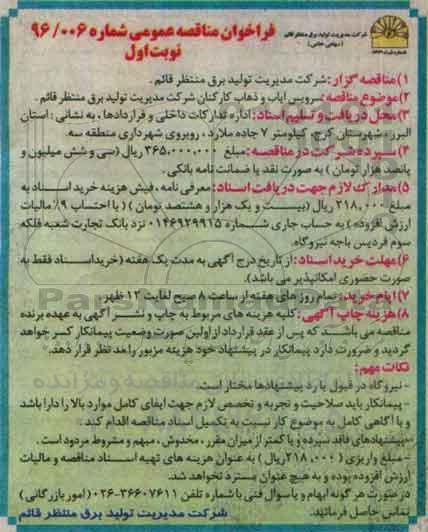 شرکت مدیریت تولید برق منتظر قائم
(سهامی خاص)
فراخوان مناقصه عمومی شماره ۹۶/۰۰۶
نوبت اول
۱) مناقصه گزار: شرکت مدیریت تولید برق منتظر قائم .
۲) موضوع مناقصه: سرویس ایاب و ذهاب کارکنان شرکت مدیریت تولید برق منتظر قائم .
۳) محل دریافت و تسلیم اسناد: اداره تدارکات داخلی و قراردادها ، به نشانی : استان
البرز، شهرستان کرج، کیلومتر ۷ جاده ملارد، روبروی شهرداری منطقه سه.
۴) سپرده شرکت در مناقصه: مبلغ ۳۶۵,۰۰۰,۰۰۰ ریال (سی و شش میلیون و
پانصد هزار تومان ) به صورت نقد یا ضمانت نامه بانکی .
۵) مدارک لازم جهت دریافت اسناد: معرفی نامه ، فیش هزینه خرید اسناد به
مبلغ ۲۱۸,۰۰۰ ریال (بیست و یک هزار و هشتصد تومان ) ( با احتساب ۹٪ مالیات
ارزش افزوده ) به حساب جاری شماره ۰۱۴۶۹۲۹۹۱۵ نزد بانک تجارت شعبه فلکه
سوم فردیس باجه نیروگاه.
۶) مهلت خرید اسناد: از تاریخ درج آگهی به مدت یک هفته (خرید اسناد فقط به
صورت حضوری امکانپذیر می باشد).
۷) ایام خرید: تمام روزهای هفته از ساعت ۸ صبح لغایت ۱۲ ظهر
۸) هزینه چاپ آگهی: کلیه هزینه های مربوط به چاپ و نشر آگهی به عهده برنده
مناقصه می باشد که پس از عقد قرارداد از اولین صورت وضعیت پیمانکار کسر خواهد
گردید و ضرورت دارد پیمانکار در پیشنهاد خود هزینه مزبور را مد نظر قرار دهد.
نکات مهم:
- نیروگاه در قبول یا رد پیشنهادها مختار است.
- پیمانکار باید صلاحیت و تجربه و تخصص لازم جهت ایفای کامل موارد بالا را دارا باشد
و با آگاهی کامل به موضوع کار نسبت به تکمیل اسناد مناقصه اقدام کند .
- پیشنهادهای فاقد سپرده و یا کمتر از میزان مقرر ، مخدوش ، مبهم و مشروط مردود است .
- مبلغ واریزی ( ۲۱۸,۰۰۰ ریال ) به عنوان هزینه های تهیه اسناد مناقصه و مالیات
ارزش افزوده بوده و به هیچ عنوان مسترد نخواهد شد.
در صورت هر گونه ابهام و یا سوال فنی با شماره تلفن ۳۶۶۰۷۶۱۱-۰۲۶ (امور بازرگانی)
تماس حاصل فرمائید.
شرکت مدیریت تولید برق منتظر قائم